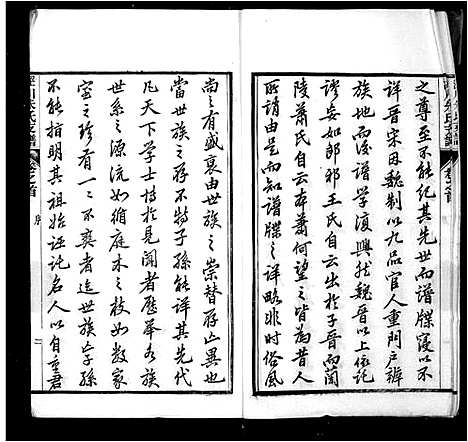 之尊至不能纪其先世而譜牒寖以不
詳晉宋因魏制以九品官人重門戶辨
族地而後譜學復興然魏晉以上依託
謬妄如郎邪王氏自云出於子晉而蘭
陵蕭氏自云本蕭何望之皆為昔人
所誚由是知譜牒之詳略非時俗風
尚之有盛衰由世族之崇替存亡異也
當世族之存不特子孫能詳其先代
凡天下學士博於見聞者歷舉各族
世系之源流如循庭木之枝如數家
室之珍有一二不爽者迨世族亡子孫
不能指明其祖始誣託名人以自重君
序